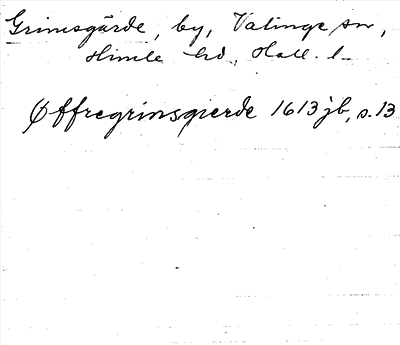 Grimsgärde, by, Valinge sn,
Himle hd., Hall. l.
Øffregrinsgierde 1613 jb, s. 13